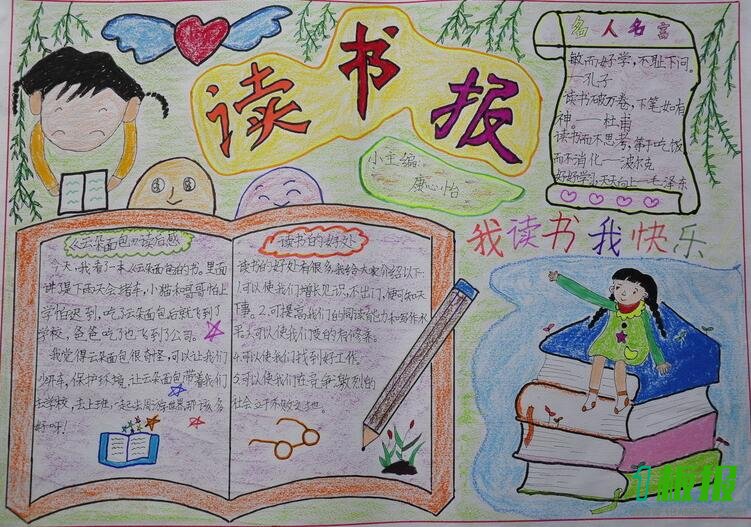 读书报
小主编:
康心怡
名人名言
敏而好学,不耻下问。
—孔子
读书破万卷,下笔如有
神。——杜甫
读书而不思考,等于吃饭
而不消化——波尔克
好好学习天天向上—毛泽东
我读书我快乐
《云朵面包》读后感
今天,我看了一本《云朵面包》的书。里面
讲了：下雨天会堵车,小猫和哥哥怕上
学怕迟到,吃了云朵面包后就飞到了
学校,爸爸吃了也飞到了公司。
我觉得云朵面包很奇怪,可以让我们
少开车,保护环境,让云朵面包带着我们
去学校,去上班,一起出周游世界,那该多
好呀!
读书的好处
读书的好处有很多,我给大家介绍以下:
1.可以使我们增长见识,不出门,便可知天
下事。2.可提高我们的阅读能力和写作水
平。3.可以使我们变的有修养。
4.可以使我们找到好工作。
5.可以使我们在竞争激烈的
社会立于不败之地。
板报